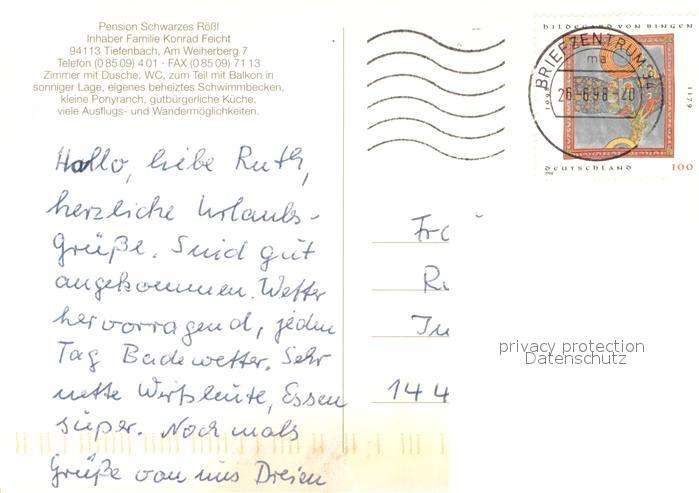 Pension Schwarzes Rößl
Inhaber Familie Konrad Feicht
94113 Tiefenbach, Am Weiherberg 7
Telefon (0 85 09) 4 01 · FAX (0 85 09) 71 13
Zimmer mit Dusche, WC, zum Teil mit Balkon in
sonniger Lage, eigenes beheiztes Schwimmbecken,
kleine Ponyranch, gutbürgerliche Küche,
viele Ausflugs- und Wandermöglichkeiten.
Hallo, liebe Ruth,
herzliche Urlaubs-
Grüße. Sind gut
angekommen. Wetter
hervorragend, jeden
Tag Badewetter. Sehr
nette Wirtsleute, Essen
super. Nochmals
Grüße von uns Dreien
HILDEGARD VON BINGEN
1098
1179
DEUTSCHLAND 100
1998
BRIEFZENTRUM
ma
26.-6.98-20
Fra
Ru
In
144
privacy protection
Datenschutz